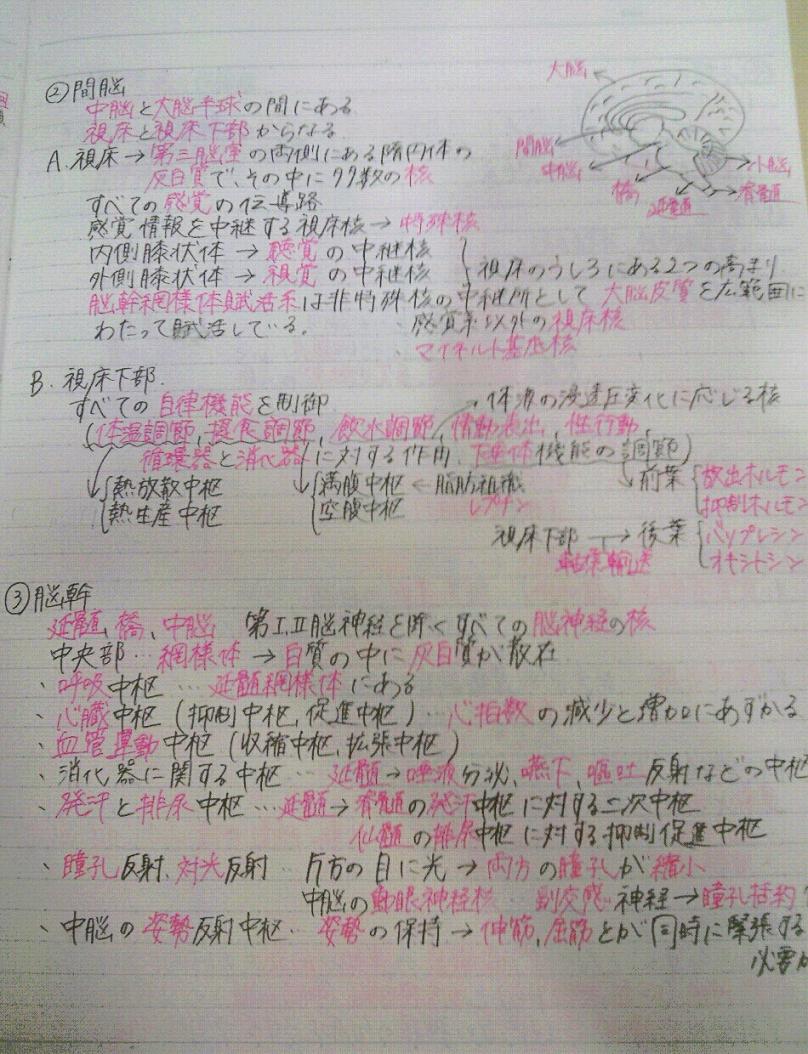 ②間脳
中脳と大脳半球の間にある
視床と視床下部からなる
A. 視床→第三脳室の両側にある隋円体の
灰白質で、その中に多数の核
すべての感覚の伝導路
感覚情報を中継する視床核→特殊核
内側膝状体→聴覚の中継核
外側膝状体→視覚の中継核
視床のうしろにある2つの高まり
脳幹網様体賦活系は非特殊核の中継所として大脳皮質を広範囲に
わたって賦活している。
感覚系以外の視床核
マイネルト基底核
大脳
間脳
中脳
橋
延髄
小脳
脊髄
B. 視床下部.
すべての自律機能を制御
体液の浸透圧変化に応じる核
(体温調節,摂食調節,飲水調節,情動表出,性行動,
循環器と消化器に対する作用,下垂体機能の調節)
熱放散中枢
熱生産中枢
満腹中枢←脂肪組織
空腹中枢 レプチン
前葉 放出ホルモン
抑制ホルモン
視床下部→後葉 バソプレシン
軸索輸送 オキシトシン
③脳幹
延髄,橋,中脳 第Ⅰ,Ⅱ脳神経を除くすべての脳神経の核
中央部…網様体→白質の中に灰白質が散在
、呼吸中枢…延髄網様体にある
、心臓中枢(抑制中枢,促進中枢)…心拍数の減少と増加にあずかる
、血管運動中枢(収縮中枢,拡張中枢)
、消化器に関する中枢…延髄→唾液分泌、嚥下、嘔吐反射などの中枢
、発汗と排尿中枢…延髄→脊髄の発汗中枢に対する二次中枢
仙髄の排尿中枢に対する抑制促進中枢
、瞳孔反射、対光反射…片方の目に光→両方の瞳孔が縮小
中脳の動眼神経核…副交感神経→瞳孔括約
、中脳の姿勢反射中枢…姿勢の保持→伸筋,屈筋とが同時に緊張する
必要が